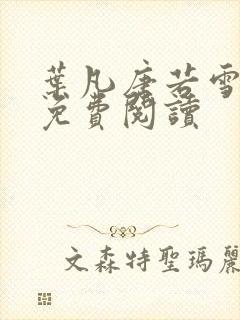 葉凡唐若雪
免費閱讀
文森特聖瑪麗